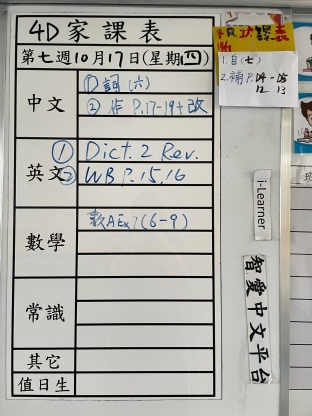 4D家課表
第七週10月17日(星期四)
中文
① 詞(六)
② 作 P.17-19+改
英文
① Dict. 2 Rev.
② WB P.15,16
數學
數AEx7(6-9)
常識
其它
值日生
功課表
1. 自(七)
2. 補 P.04-05
12 13
i-Learner
智愛中文平台
班